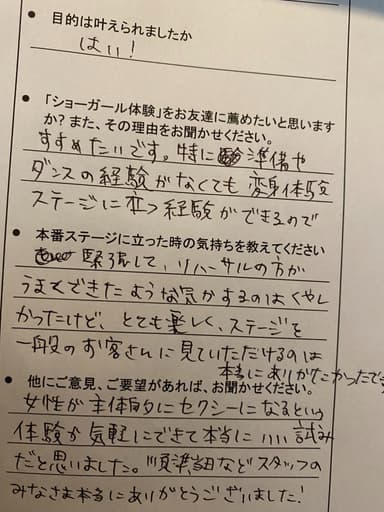 • 目的は叶えられましたか
はい！
• 「ショーガール体験」をお友達に薦めたいと思います
か？また、その理由をお聞かせください。
すすめたいです。特に準備や
ダンスの経験がなくても変身体験
ステージに立つ経験ができるので
• 本番ステージに立った時の気持ちを教えてください
緊張して、リハーサルの方が
うまくできたような気がするのはくやし
かったけど、とても楽しく、ステージを
一般のお客さんに見ていただけるのは
本当にありがたかったです
• 他にご意見、ご要望があれば、お聞かせください。
女性が主体的にセクシーになるという
体験が気軽にできて本当にいい試み
だと思いました。などスタッフの
みなさま本当にありがとうございました！